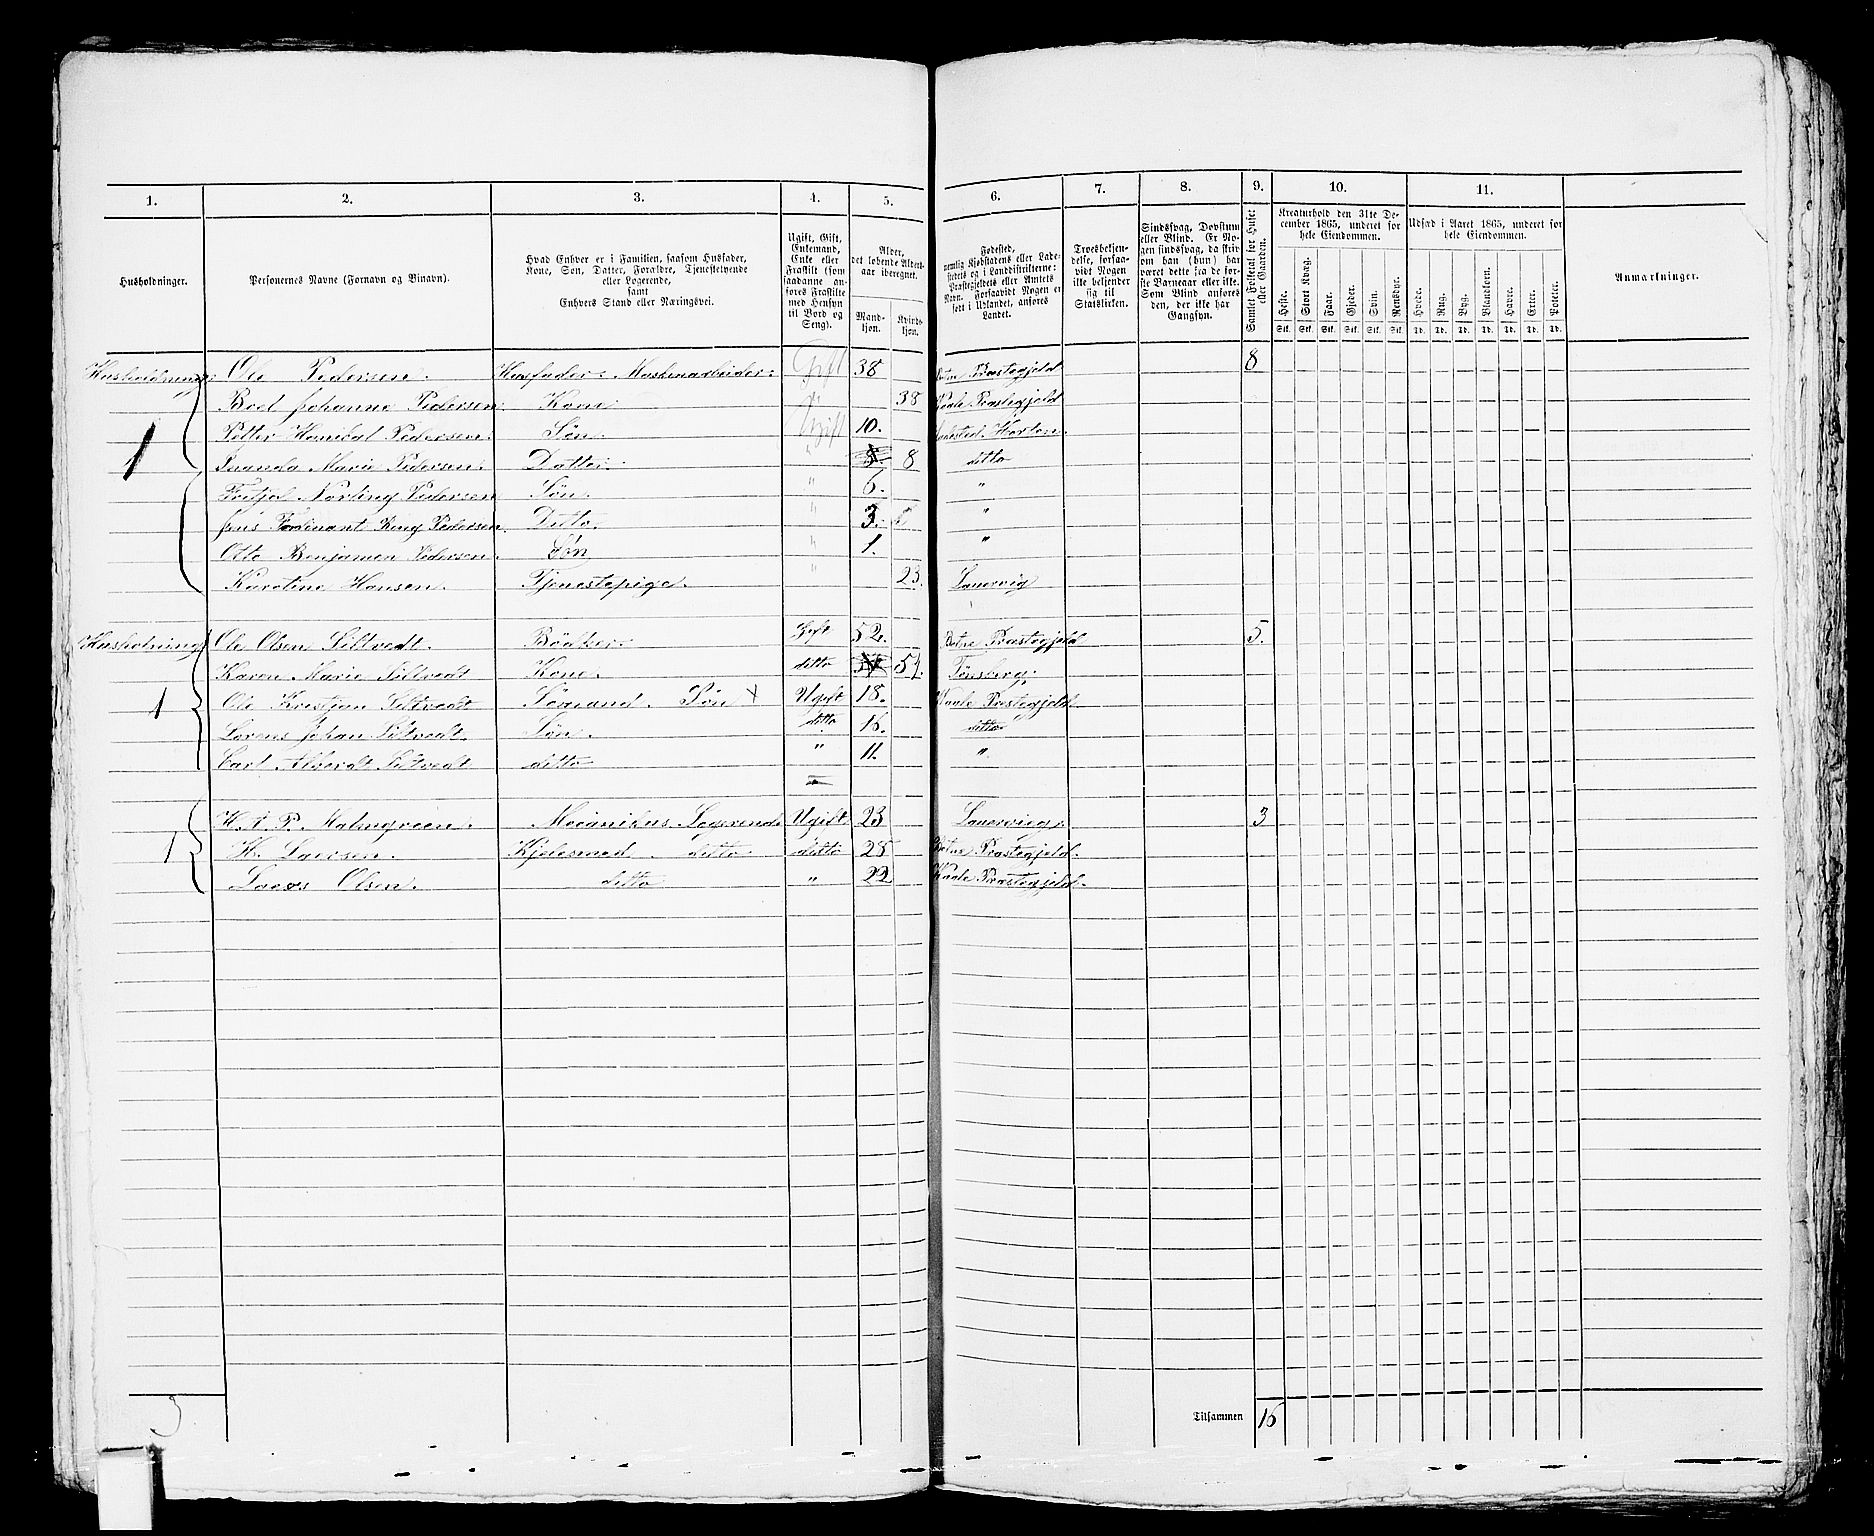 1. 2. 3. 4. 5. 6. 7. 8. 9. 10. 11.
Husholdninger.
Personernes Navne (Fornavn og Binavn).
Hvad Enhver er i Familien, saasom Husfader,
Kone, Søn, Datter, Forældre, Tjenestetyende
eller Logerende,
samt
Enhvers Stand eller Næringsvei.
Ugift, Gift,
Enkemand,
Enke eller
Fraskilt (som
saadanne an-
føres Fraskilte
med Hensyn
til Bord og
Seng).
Alder,
det løbende Alders-
aar iberegnet.
Mand-
kjøn.
Kvinde-
kjøn.
Fødested,
nemlig Kjøbstadens eller Lade-
stedets og i Landdistrikterne:
Præstegjeldets eller Amtets
Navn. Forsaavidt Nogen er
født i Udlandet, anføres
Landet.
Troesbekjen-
delse, forsaa-
vidt Nogen
ikke bekjender
sig til
Statskirken.
Sindssvag, Døvstum
eller Blind. Er No-
gen sindssvag, da skriv
om han (hun) har
været dette fra de før-
ste Barneaar eller ikke.
Som Blind anføres
den, der ikke har
Gangsyn.
Samlet Folketal for Huset
eller Gaarden.
Kreaturhold den 31te De-
cember 1865, underet for
hele Eiendommen.
Heste. Stort Kvæg. Faar. Gjeder. Svin. Rensdyr.
Stk. Stk. Stk. Stk. Stk. Stk.
Udsæd i Aaret 1865, underet for
hele Eiendommen.
Hvede. Rug. Byg. Blandkorn. Havre. Erter. Poteter.
Td. Td. Td. Td. Td. Td. Td.
Anmærkninger.
Husholdninger Ole Pedersen. Husfader: Maskenarbeider: Gift 38 Botne Præstegjeld 8
Boel Johanne Pedersen. Kone " 38 Vaale Præstegjeld
Petter Hanibal Pedersen. Søn. Ugift 10. Ladested Horten.
1 Marie Pedersen. Datter. " 8 ditto
Fritjof Pedersen Søn. " 6. "
Jens Ferdinant Pedersen. Ditto. " 3. "
Otto Benjamen Pedersen. Søn " 1. "
Karoline Hansen. Tjenestepige. " 23. Laurvig
Husholdning Ole Olsen Siltvedt. Bødker. Gift 52. Botne Præstegjeld 5.
Karen Marie Siltvedt Kone. ditto 54. Tønsberg.
1 Ole Krestjan Siltvedt Sømand. Søn x Ugift 18. Vaale Præstegjeld.
Lorens Johan Siltvedt. Søn. ditto 16. ditto
Carl Alberdt Siltvedt ditto " 11. "
H. A. P. Malmgreen. Mecanikus Logerend. Ugift 23 Laurvig. 3
1 H. Larsen. Kjedesmed. ditto ditto 28 Botne Præstegjeld.
Olsen. ditto " 22 Vaale Præstegjeld.
3
Tilsammen 16